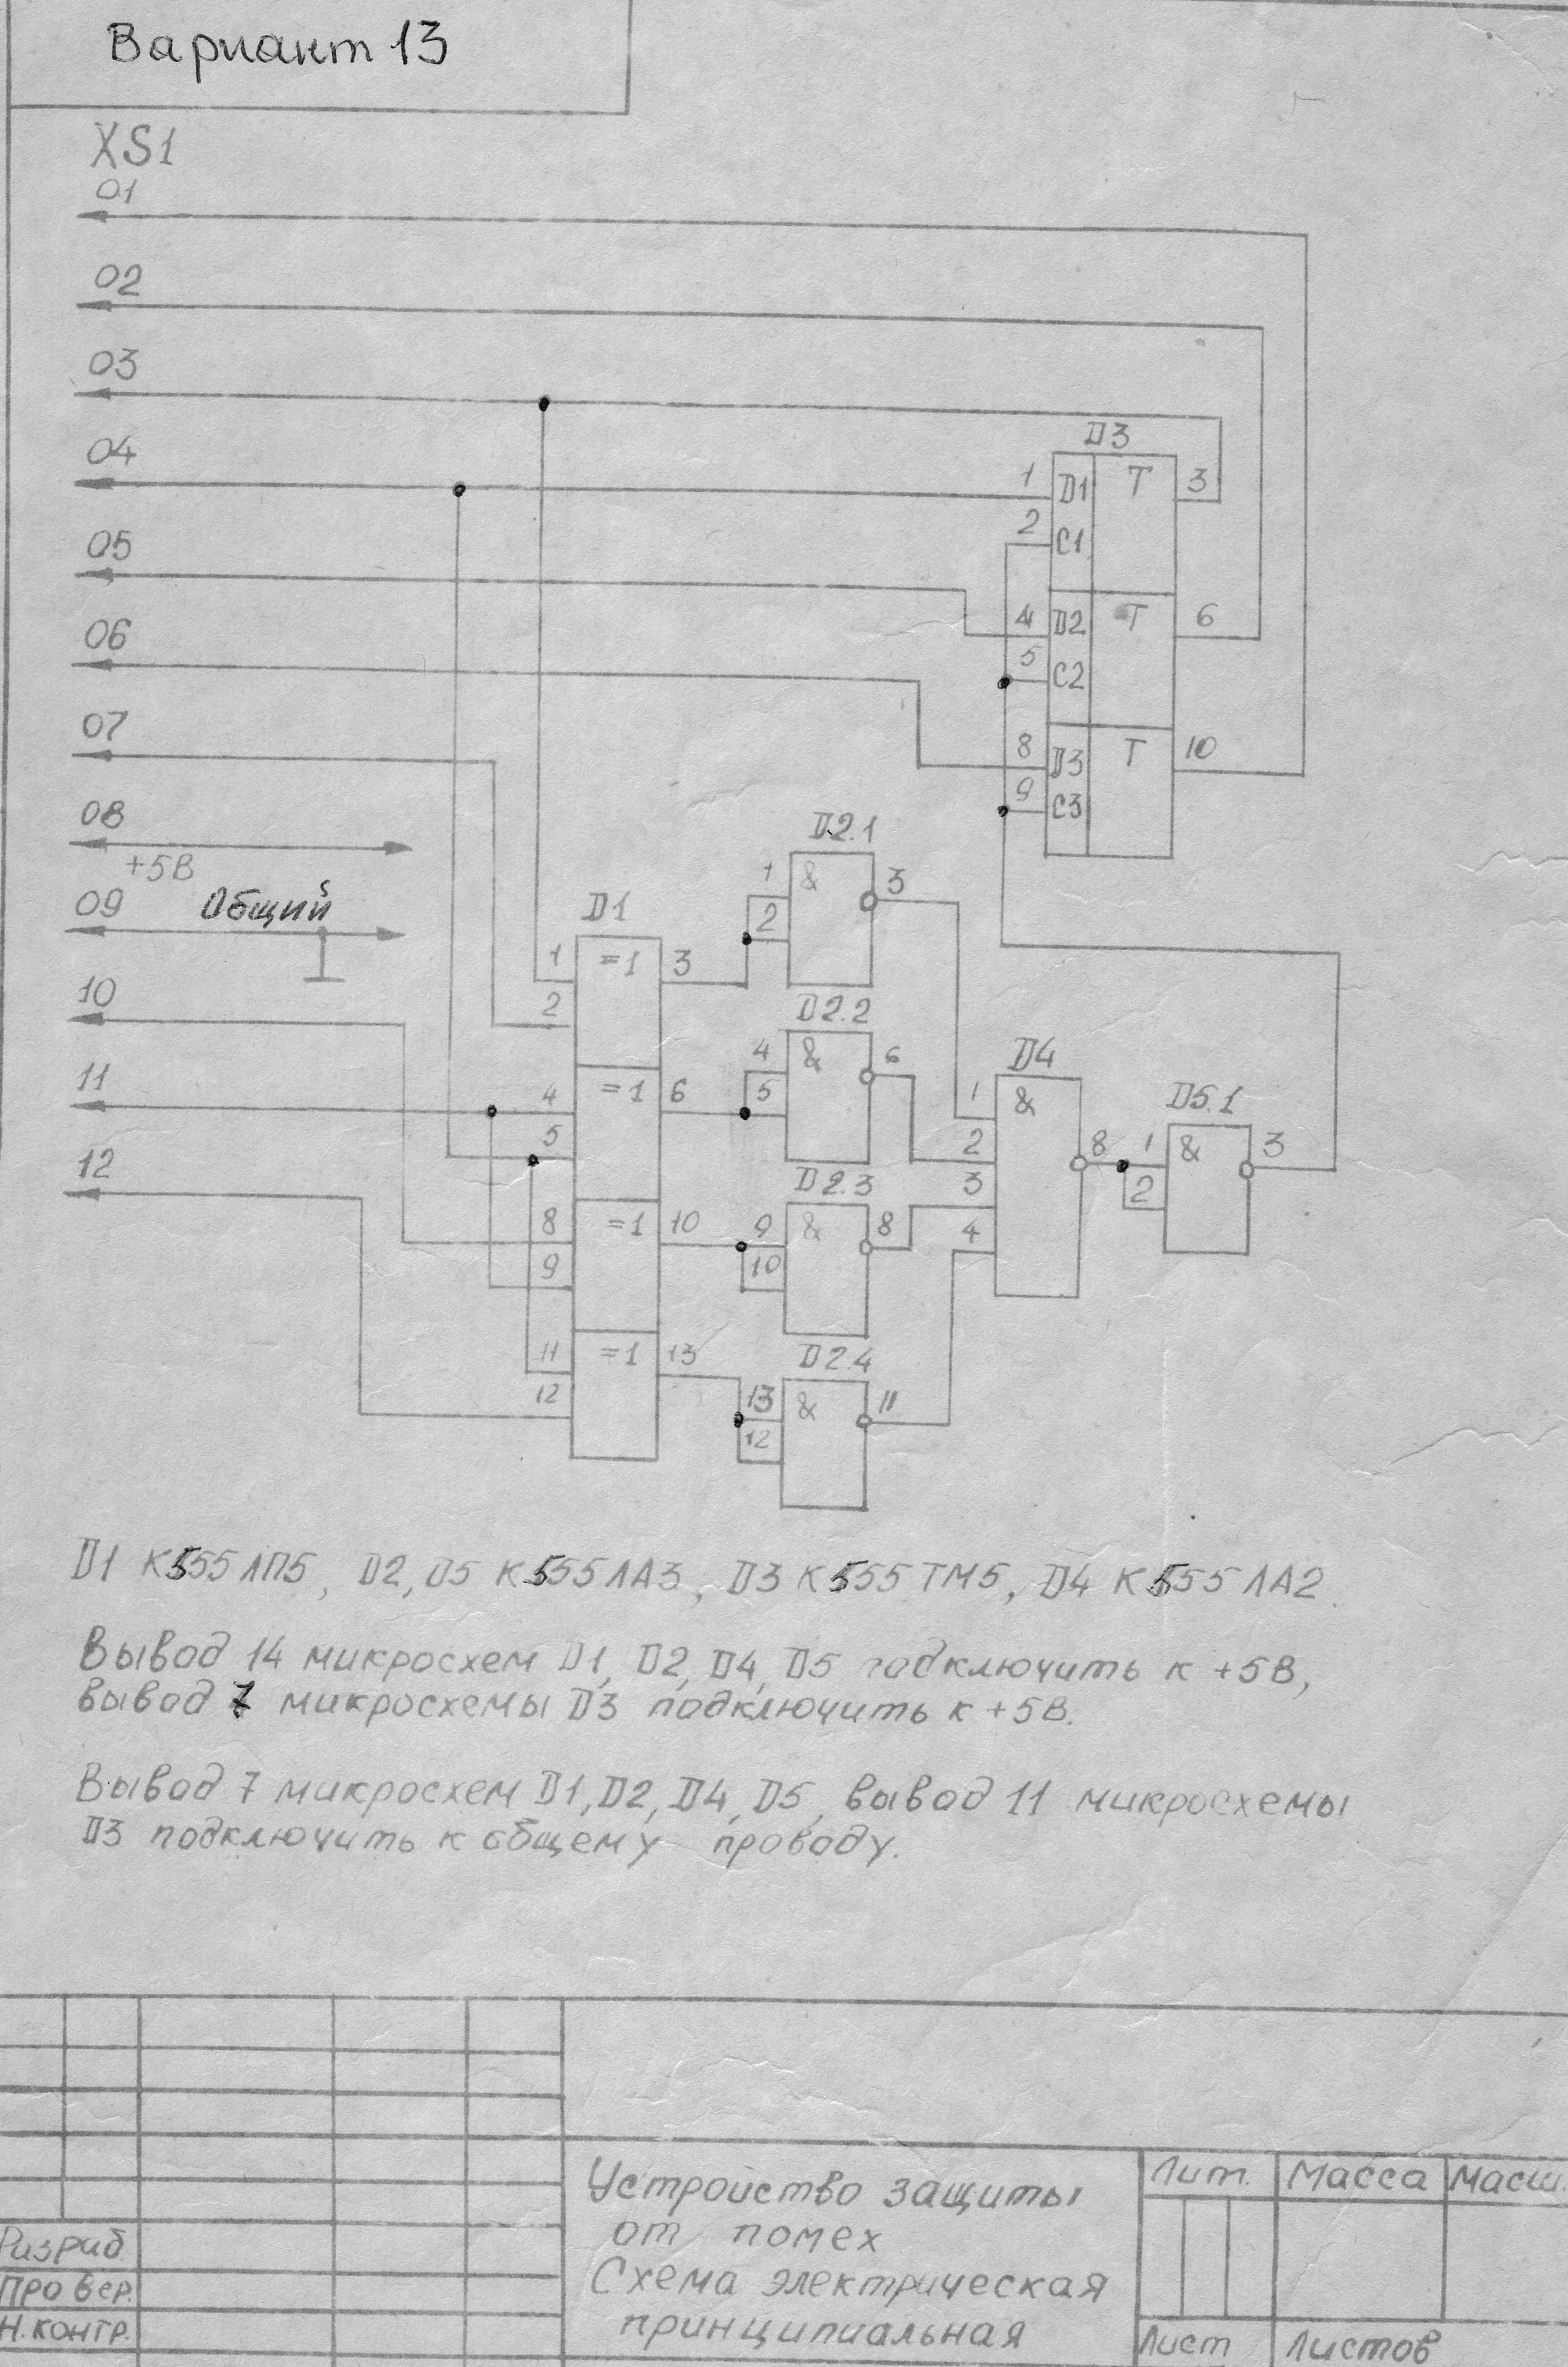 Вариант 13
XS1
01
02
03
04
05
06
07
08
+5В
09 Общий
10
11
12
D3
1 D1 T 3
2 C1
4 D2 T 6
5 C2
8 D3 T 10
9 C3
D1
1 =1 3
2
4 =1 6
5
8 =1 10
9
11 =1 13
12
D2.1
1 & 3
2
D2.2
4 & 6
5
D2.3
9 & 8
10
D2.4
13 & 11
12
D4
1 &
2 8
3
4
D5.1
1 & 3
2
D1 К555ЛП5, D2, D5 К555ЛА3, D3 К555ТМ5, D4 К555ЛА2.
Вывод 14 микросхем D1, D2, D4, D5 подключить к +5В,
вывод 7 микросхемы D3 подключить к +5В.
Вывод 7 микросхем D1, D2, D4, D5, вывод 11 микросхемы
D3 подключить к общему проводу.
Устройство защиты
от помех
Схема электрическая
принципиальная
Лит. Масса Масш.
Разраб
Провер.
Н.контр.
Лист Листов